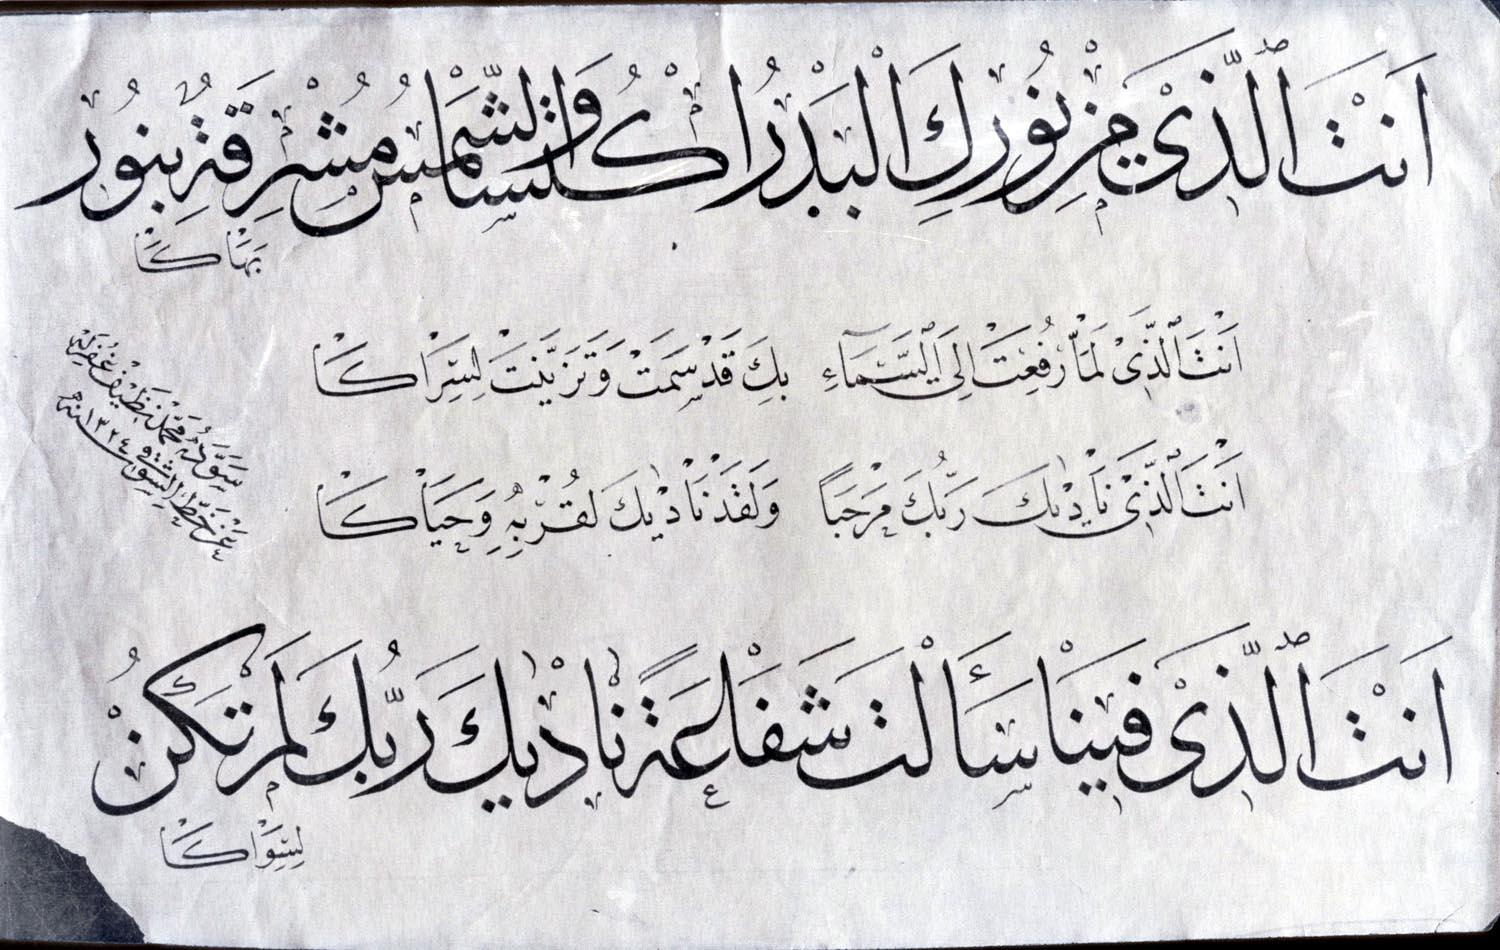 اَنْتَ الَّذِي مِنْ نُورِكَ الْبَدْرُ اكْتَسَا وَالشَّمْسُ مُشْرِقَةٌ بِنُورِ
بَهَاكَا
اَنْتَ الَّذِي لَمَّا رُفِعْتَ اِلَى السَّمَاءِ بِكَ قَدْ سَمَتْ وَتَزَيَّنَتْ لِسِرَاكَا
اَنْتَ الَّذِي نَادٰيكَ رَبُّكَ مَرْحَبًا وَلَقَدْ نَادٰيكَ لِقُرْبِهِ وَحَيَاكَا
اَنْتَ الَّذِي فِينَا سَأَلْتَ شَفَاعَةً نَادٰيكَ رَبُّكَ لَمْ تَكُنْ
لِسِوَاكَا
سَوَّدَهُ مُحَمَّد نَظِيفْ غُفِرَ لَهُ
عَنْ خَطِّ الشَّوْقِي سنه ١٣٢٤